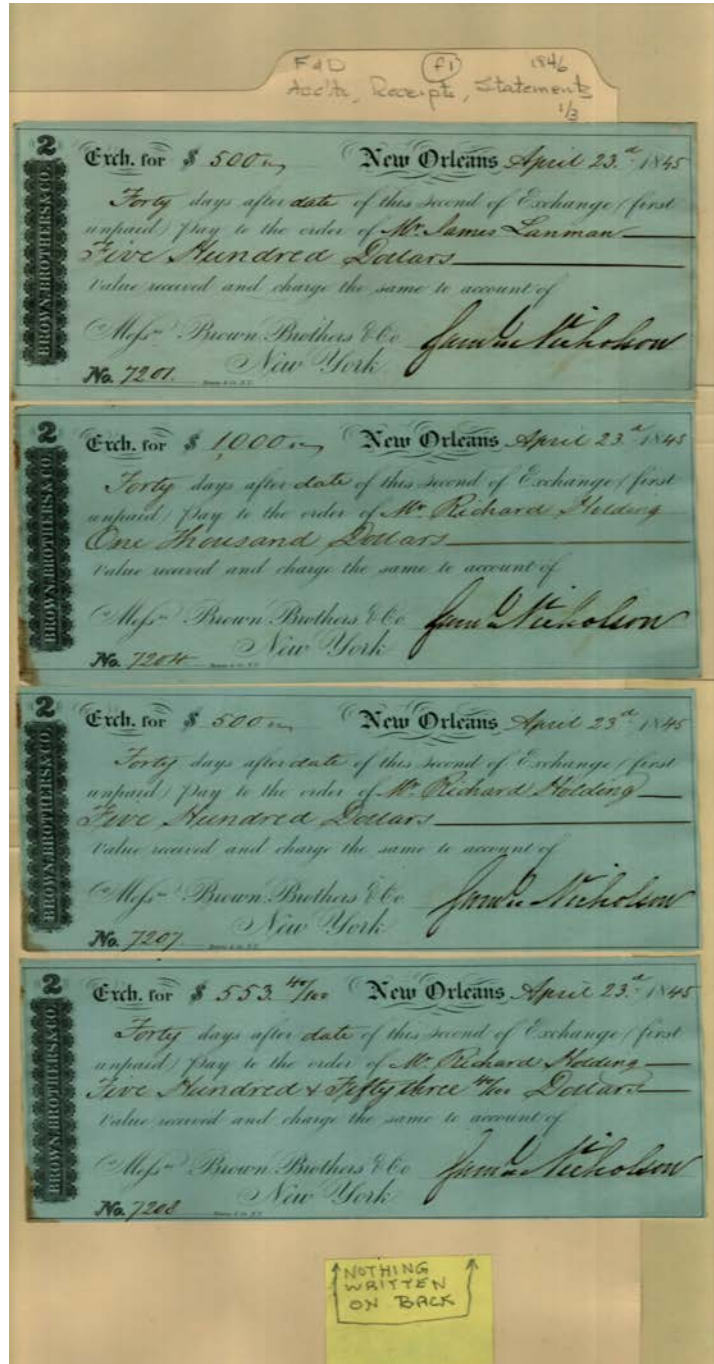 F & D (f1) 1846
Acc'ts, Receipts, Statements
1/3
2
BROWN, BROTHERS & CO.
Exch. for $ 500 New Orleans April 23.d 1845
Forty days after date of this second of Exchange (first
unpaid) Pay to the order of Mr. James Lanman
Five Hundred Dollars
Value received and charge the same to account of
Messrs Brown Brothers & Co Saml Nicholson
New York
No. 7201.
2
BROWN, BROTHERS & CO.
Exch. for $ 1,000 New Orleans April 23.d 1845
Forty days after date of this second of Exchange (first
unpaid) Pay to the order of Mr. Richard Holding
One Thousand Dollars
Value received and charge the same to account of
Messrs Brown Brothers & Co Saml Nicholson
New York
No. 7204
2
BROWN, BROTHERS & CO.
Exch. for $ 500 New Orleans April 23d 1845
Forty days after date of this second of Exchange (first
unpaid) Pay to the order of Mr. Richard Holding
Five Hundred Dollars
Value received and charge the same to account of
Messrs Brown Brothers & Co Saml Nicholson
New York
No. 7207
2
BROWN, BROTHERS & CO.
Exch. for $ 553. 40/100 New Orleans April 23.d 1845
Forty days after date of this second of Exchange (first
unpaid) Pay to the order of Mr. Richard Holding
Five Hundred & Fifty three 40/100 Dollars
Value received and charge the same to account of
Messrs Brown Brothers & Co Saml Nicholson
New York
No. 7208
NOTHING
WRITTEN
ON BACK